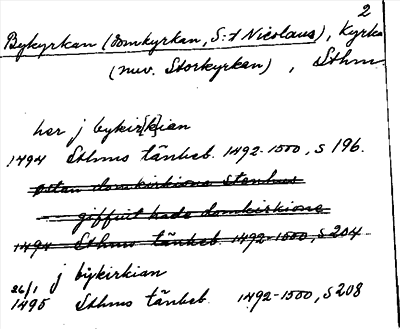 2
Bykyrkan (domkyrkan, S:t Nicolaus), Kyrka
(nuv. Storkyrkan), Sthm
her j bykir(k)ian
1494 Sthms tänkeb. 1492-1500, s 196.
østan domkirkione stenhus
giffuit hade domkirkione
1494 Sthms tänkeb. 1492-1500, s 204
j bykirkian
26/1
1495 Sthms tänkeb. 1492-1500, s 208